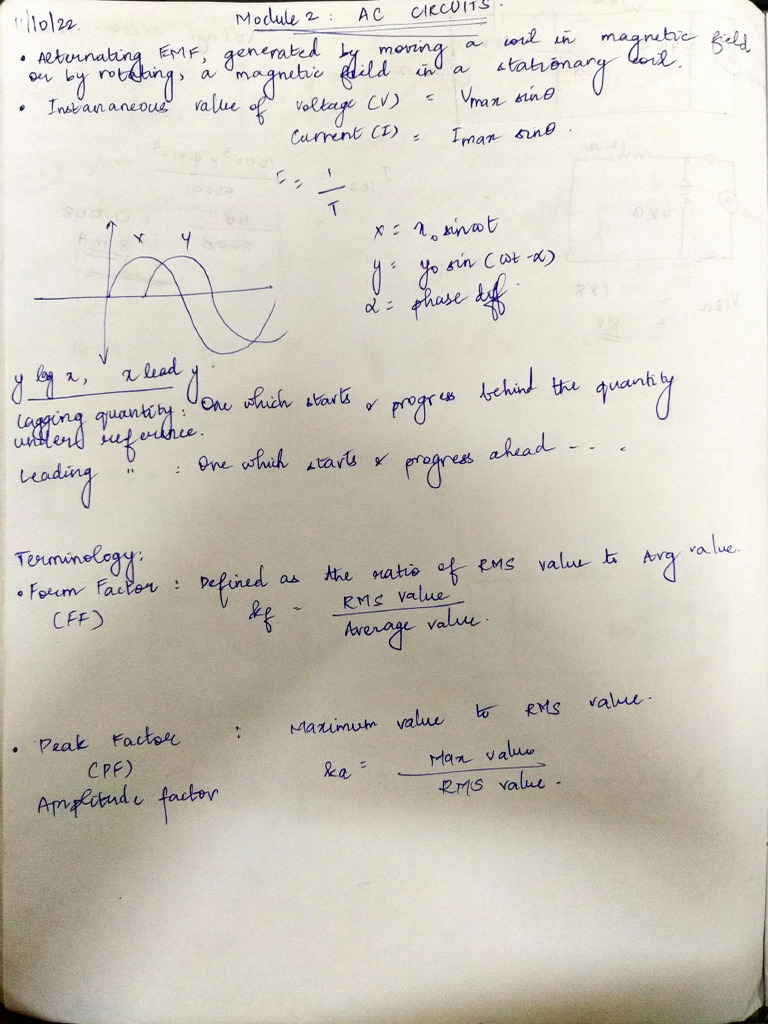 11/10/22.
Module 2 : AC CIRCUITS.
• Alternating EMF, generated by moving a coil in magnetic field
or by rotating, a magnetic field in a stationary coil.
• Instananeous value of voltage (V) = Vmax sinθ
Current (I) = Imax sinθ.
= 1/T
x y
x = x₀ sin ωt
y = y₀ sin (ωt - α)
α = phase diff.
y lag x, x lead y.
Lagging quantity: One which starts & progress behind the quantity
under reference.
Leading " : One which starts & progress ahead -- .
Terminology:
• Form Factor : Defined as the ratio of RMS value to Avg value.
(FF) kf = RMS value / Average value.
• Peak Factor : Maximum value to RMS value.
(PF) ka = Max value / RMS value.
Amplitude factor